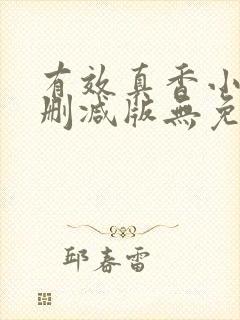 有效真香小
删减版無免
邱春雷